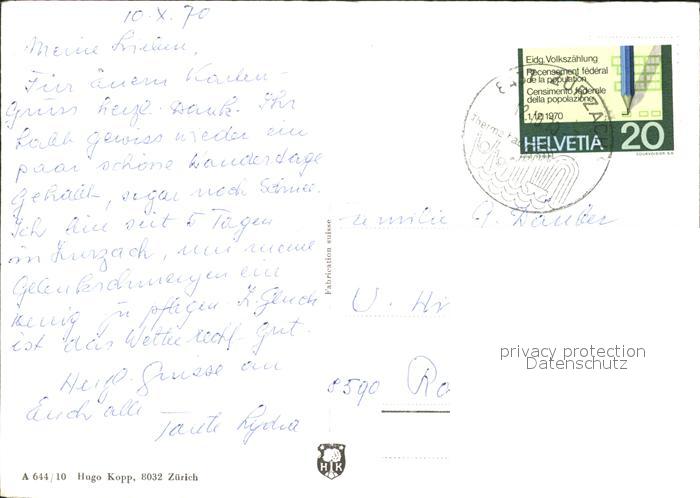 10.X.70
Meine Lieben,
Für euern Karten-
gruss herzl. Dank. Ihr
habt gewiss wieder ein
paar schöne Wandertage
gehabt, sogar noch Schnee.
Ich bin seit 5 Tagen
in Zurzach, um meine
Gelenkschmerzen ein
wenig zu pflegen. Z. Glück
ist das Wetter recht gut.
Herzl. Grüsse an
Euch alle
Tante Lydia
Eidg. Volkszählung
Recensement fédéral
de la population
Censimento federale
della popolazione
1.12.1970
HELVETIA 20
COURVOISIER S.A.
ZURZACH
Familie G. Dauber
U. Hi
8590 Ro
privacy protection
Datenschutz
Fabrication suisse
HK
A 644/10 Hugo Kopp, 8032 Zürich